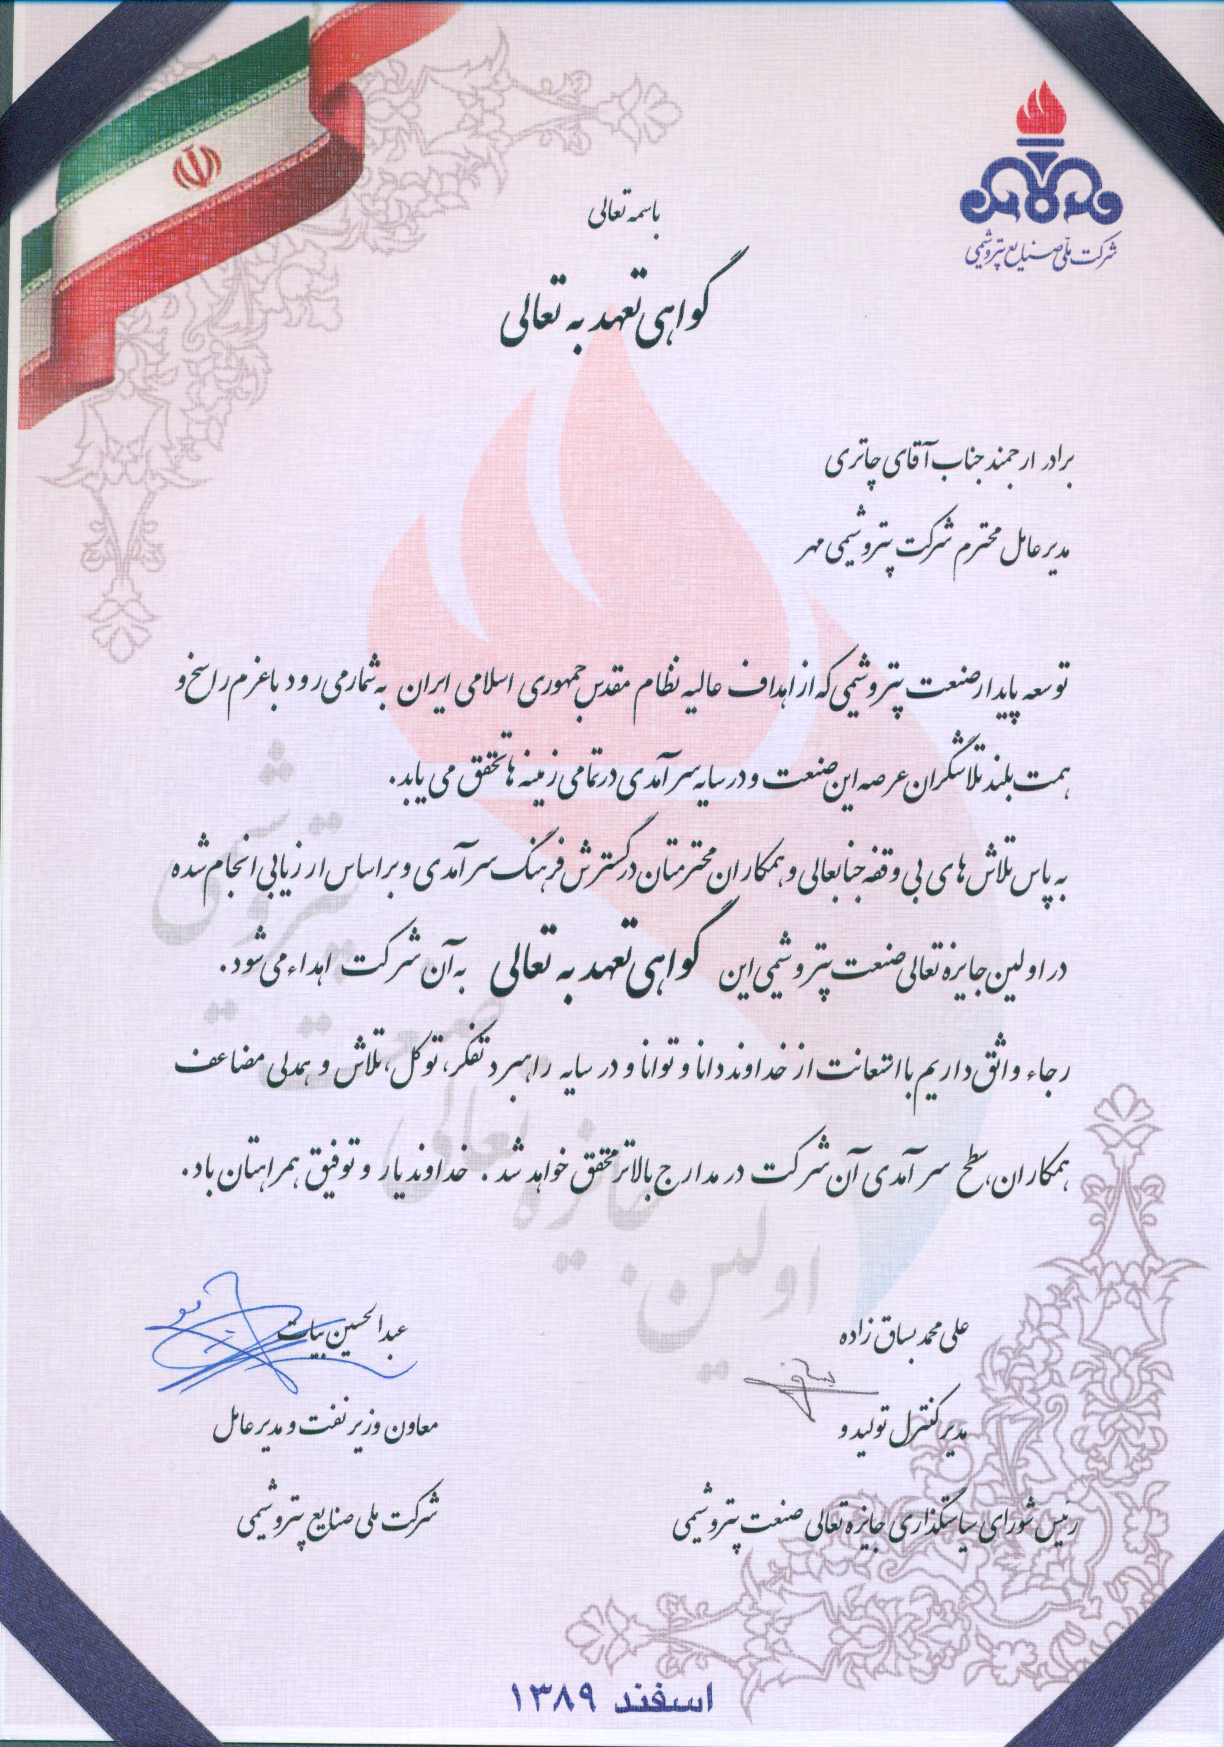 شرکت ملی صنایع پتروشیمی
باسمه تعالی
گواهی تعهد به تعالی
برادر ارجمند جناب آقای چاتری
مدیرعامل محترم شرکت پتروشیمی مهر
توسعه پایدار صنعت پتروشیمی که از اهداف عالیه نظام مقدس جمهوری اسلامی ایران به شمار می رود با عزم راسخ و
همت بلند تلاشگران عرصه این صنعت و در سایه سرآمدی در تمامی زمینه ها تحقق می یابد.
به پاس تلاش های بی وقفه جنابعالی و همکاران محترمتان در گسترش فرهنگ سرآمدی و براساس ارزیابی انجام شده
در اولین جایزه تعالی صنعت پتروشیمی این گواهی تعهد به تعالی به آن شرکت اهداء می شود.
رجاء واثق داریم با استعانت از خداوند دانا و توانا و در سایه راهبرد تفکر، توکل، تلاش و همدلی مضاعف
همکاران، سطح سرآمدی آن شرکت در مدارج بالاتر محقق خواهد شد. خداوند یار و توفیق همراهتان باد.
اولین جایزه تعالی صنعت پتروشیمی
علی محمد بساق زاده
مدیر کنترل تولید و
رئیس شورای سیاستگذاری جایزه تعالی صنعت پتروشیمی
عبدالحسین بیات
معاون وزیر نفت و مدیرعامل
شرکت ملی صنایع پتروشیمی
اسفند ۱۳۸۹